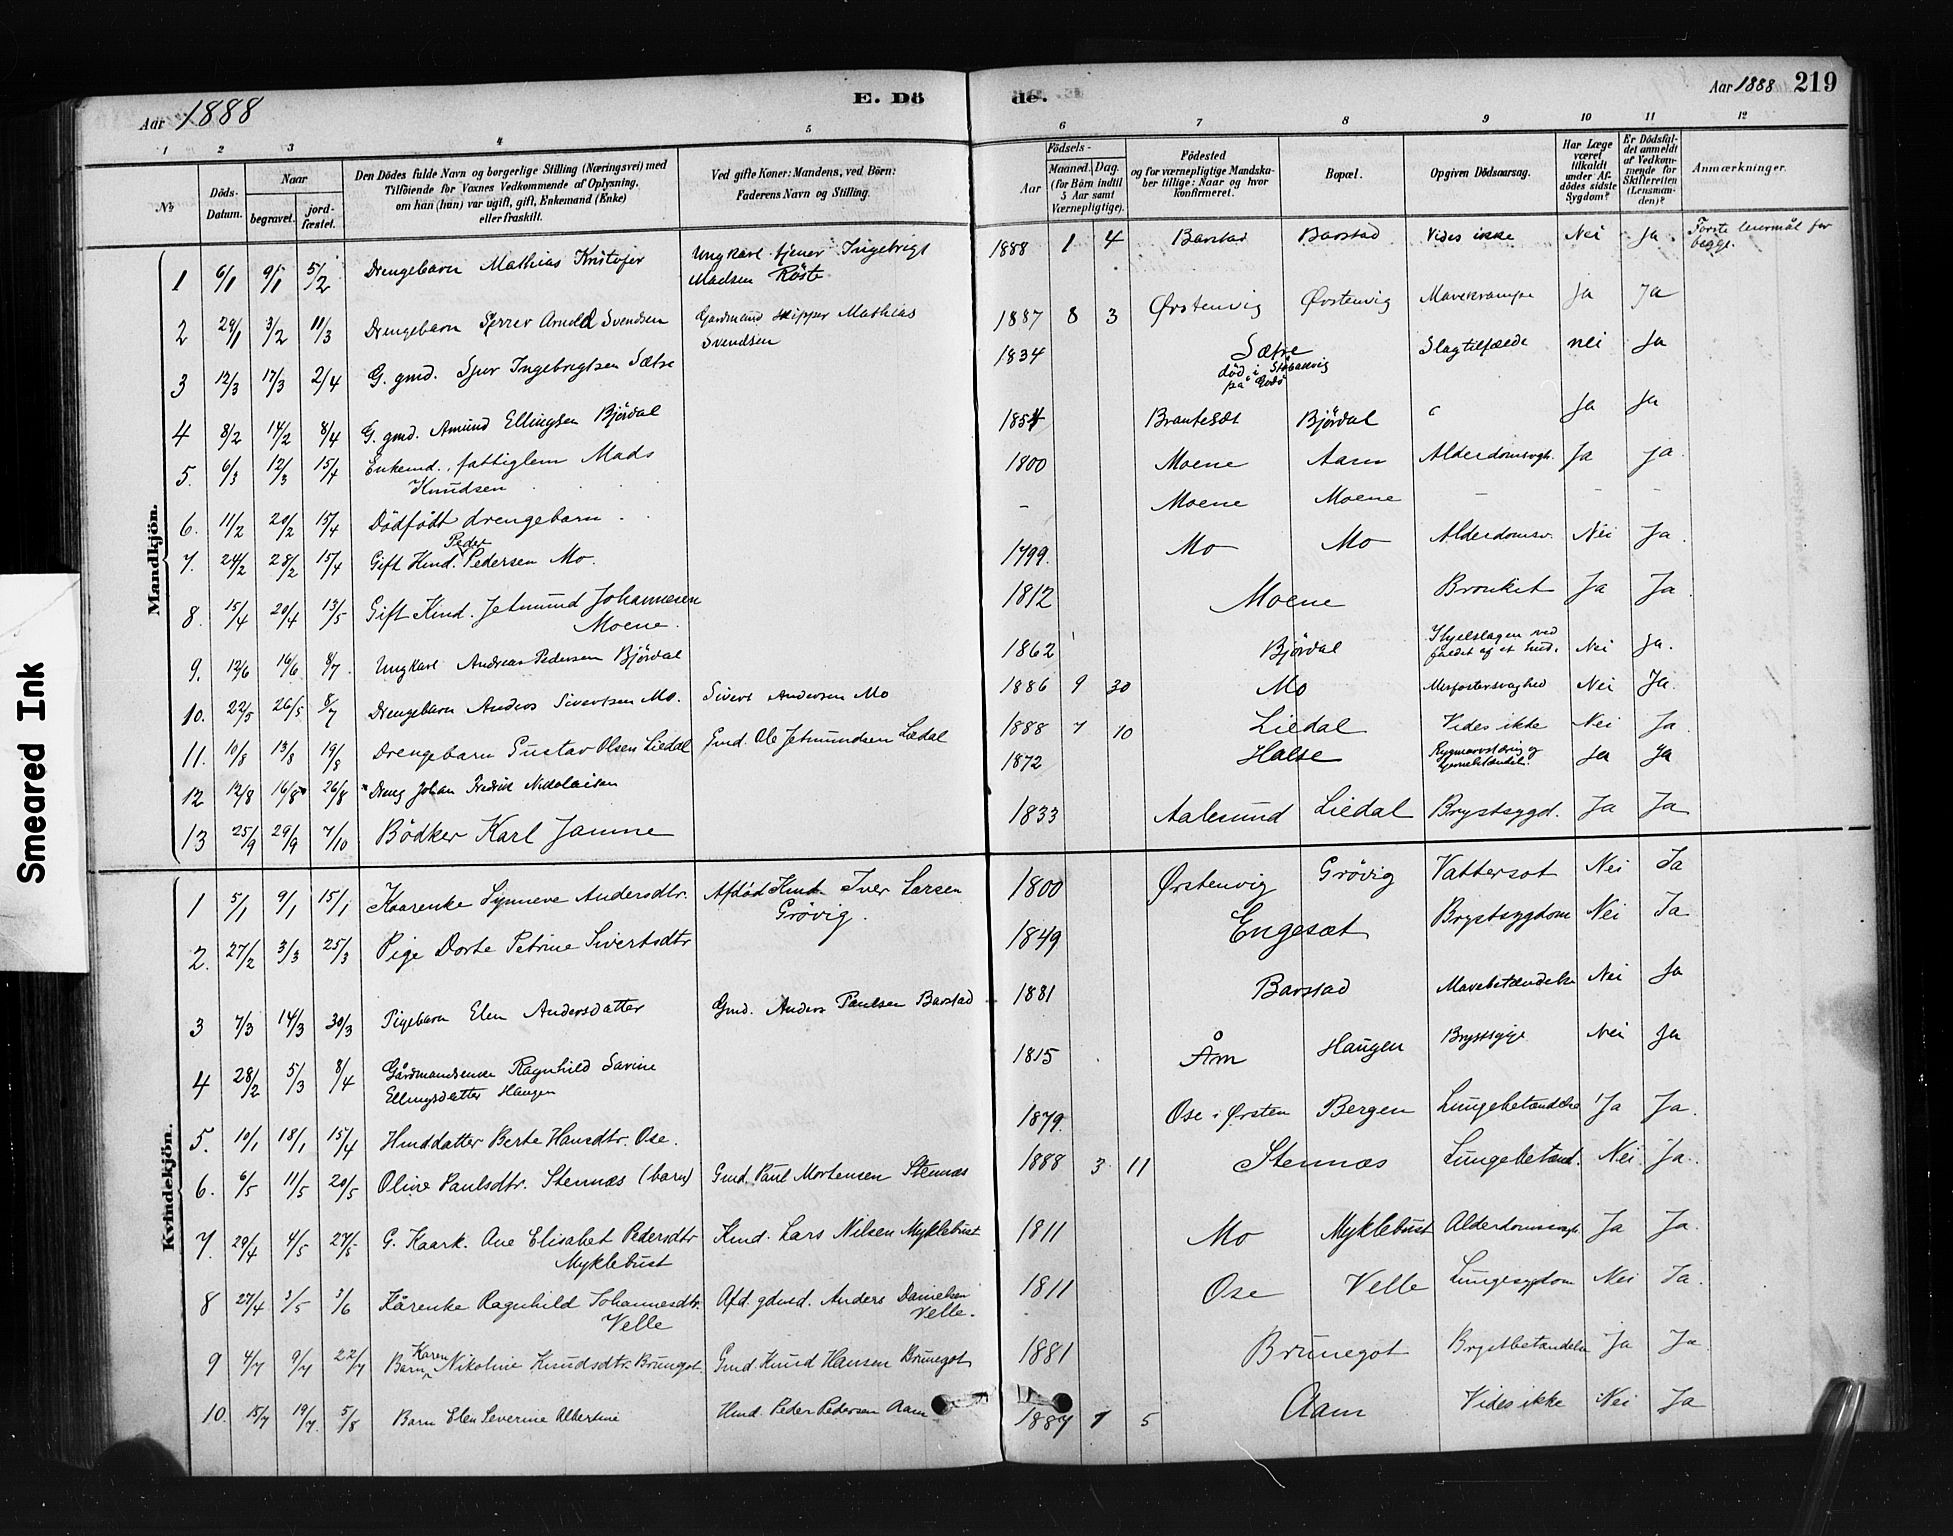 Aar 1888
E. Dö
de.
Aar 1888 219
1 2 3 4 5 6 7 8 9 10 11 12
№
Döds-Datum.
Naar
begravet.
jord-fæstet.
Den Dödes fulde Navn og borgerlige Stilling (Næringsvei) med
Tilföiende for Voxnes Vedkommende af Oplysning,
om han (hun) var ugift, gift, Enkemand (Enke)
eller fraskilt.
Ved gifte Koner: Mandens, ved Börn:
Faderens Navn og Stilling.
Födsels-
Aar
Maaned. Dag.
(for Börn indtil
5 Aar samt
Værnepligtige).
Födested
og for værnepligtige Mandska-
ber tillige: Naar og hvor
konfirmeret.
Bopæl.
Opgiven Dödsaarsag.
Har Læge
været
tilkaldt
under Af-
dödes sidste
Sygdom?
Er Dödsfal-
det anmeldt
af Vedkom-
mende for
Skifteretten
(Lensman-
den)?
Anmærkninger.
Mandkjön.
1 6/1 9/1 5/2 Drengebarn Mathias Kristofer Ungkarl tjener Ingebrigt Madsen Röste 1888 1 4 Barstad Barstad Vides ikke Nei Ja Förste leiermål for begge.
2 29/1 3/2 11/3 Drengebarn Sverre Arnold Svendsen Gardmand skipper Mathias Svendsen 1887 8 3 Ørstenvig Ørstenvig Mavekrampe Ja Ja
3 12/3 17/3 2/4 G. gmd. Sjur Ingebrigtsen Sætre 1834 Sætre død i på Godö Slagtilfælde nei Ja
4 8/2 14/2 8/4 G. gmd. Amund Ellingsen Bjørdal 1854 Brautesæt Bjørdal " Ja Ja
5. 6/3 12/3 15/4 Enkemd., fattiglem Mads Knudsen 1800 Moene Aam Alderdomsvgh. Ja Ja.
6. 11/2 20/2 15/4 Dødfødt drengebarn. - Moene Moene - - -
7. 24/2 28/2 15/4 Gift Hmd. Peder Pedersen Mo. 1799. Mo Mo Alderdomsv. Nei Ja.
8. 15/4 20/4 13/5 Gift Kmd. Jetmund Johannesen Moene. 1812 Moene Bronkit Ja Ja.
9. 12/6 16/6 8/7 Ungkarl Andreas Pedersen Bjørdal 1862 Bjørdal Ihjelslagen ved faldet af et hus. Nei Ja.
10. 22/5 26/5 8/7 Drengebarn Anders Sivertsen Mo. Sivert Andersen Mo 1886 9 30 Mo Nei Ja.
11. 10/8 13/8 19/8 Drengebarn Gustav Olsen Liedal Gmd. Ole Jetmundsen Liedal 1888 7 10 Liedal Vides ikke Nei Ja.
12 12/8 16/8 26/8 Dreng Johan Fredrik Nikolaisen 1872 Halse Ja Ja
13 25/9 29/9 7/10 Bödker Karl Janne 1833 Aalesund Liedal Brystsygd. Ja Ja
Kvindekjön.
1 5/1 9/1 15/1 Kaarenke Synneve Andersdtr. Afdöd Kmd Iver Larsen Grövig. 1800 Ørstenvig Grövig Vattersot Nei Ja
2. 27/2 3/3 25/3 Pige Dorte Petrine Sivertsdtr 1849 Engesæt Brystsygdom Nei Ja
3 7/3 14/3 30/3 Pigebarn Elen Andersdatter Gmd. Anders Paulsen Barstad 1881 Barstad Mavebetændelse Nei Ja
4 28/2 5/3 8/4 Gårdmandsenke Ragnhild Savine Ellingsdatter Haugen 1815 Åm Haugen Brystsyge Nei Ja
5. 10/1 18/1 15/4 Husddatter Berte Hansdtr. Ose. 1879. Ose i Ørsten Bergen Lungebetændelse Ja Ja.
6. 6/5 11/5 20/5 Oline Paulsdtr. Stennæs (barn) Gmd. Paul Mortensen Stennæs 1888 3 11 Stennæs Lungebetænd. Nei Ja.
7. 29/4 4/5 27/5 G. Kaark. Ane Elisabet Pedersdtr Myklebust Kmd. Lars Nilsen Myklebust 1811 Mo Myklebust Alderdomssvagh. Ja Ja.
8 27/4 3/5 3/6 Kårenke Ragnhild Johannesdtr. Velle Afd. gdmd. Anders Danielsen Velle. 1811 Ose Velle Lungesygdom Nei Ja.
9 4/7 9/7 22/7 Barn Karen Nikoline Knudsdtr. Brunegot. Gmd. Knud Hansen Brunegot 1881 Brunegot Brystbetændelse Ja Ja.
10. 15/7 19/7. 5/8 Barn Elen Severine Albertine Hmd. Peder Pedersen Aam 1887 7 5 Aam Vides ikke Nei Ja
Smeared Ink